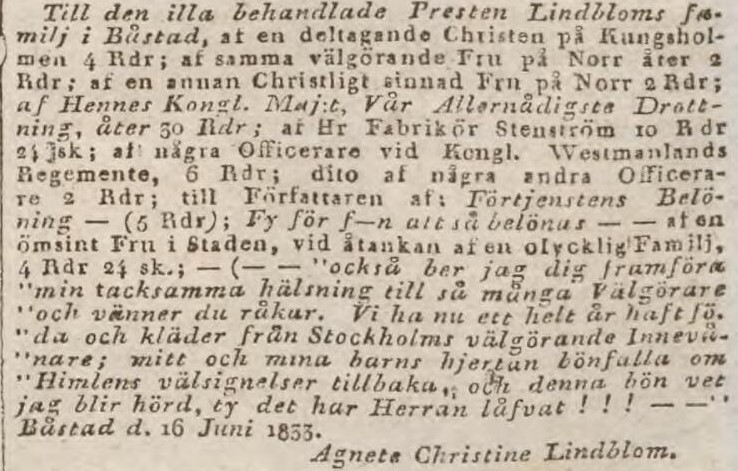 Till den illa behandlade Presten Lindbloms fa-
milj i Båstad, af en deltagande Christen på Kungshol-
men 4 Rdr; af samma välgörande Fru på Norr åter 2
Rdr; af en annan Christligt sinnad Fru på Norr 2 Rdr;
af Hennes Kongl. Maj:t, Vår Allernådigste Drott-
ning, åter 30 Rdr; af Hr Fabrikör Stenström 10 Rdr
24 sk; af några Officerare vid Kongl. Westmanlands
Regemente, 6 Rdr; dito af några andra Officera-
re 2 Rdr; till Författaren af: Förtjenstens Belö-
ning — (5 Rdr); Fy för f—n att så belönas — — af en
ömsint Fru i Staden, vid åtankan af en olycklig Familj,
4 Rdr 24 sk.; — (— — "också ber jag dig framföra
"min tacksamma hälsning till så många Välgörare
"och vänner du råkar. Vi ha nu ett helt år haft fö-
"da och kläder från Stockholms välgörande Innevå-
"nare; mitt och mina barns hjertan bönfalla om
"Himlens välsignelser tillbaka, och denna bön vet
jag blir hörd, ty det har Herran låfvat ! ! ! — —"
Båstad d. 16 Juni 1833.
Agneta Christine Lindblom.